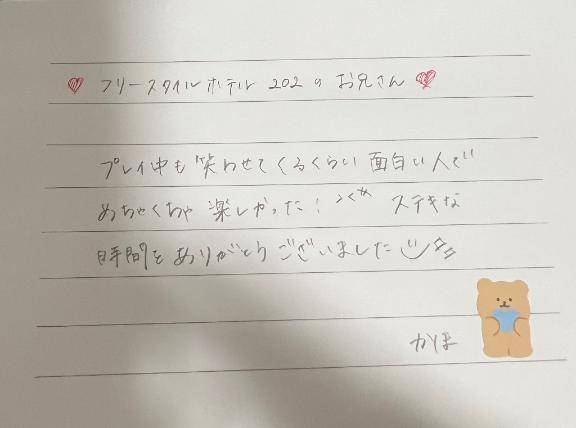 ♥ フリースタイルホテル 202 の お兄さん ♥
プレイ中も 笑わせてくるくらい 面白い人で
めちゃくちゃ 楽しかった! ステキな
時間を ありがとう ございました
かほ